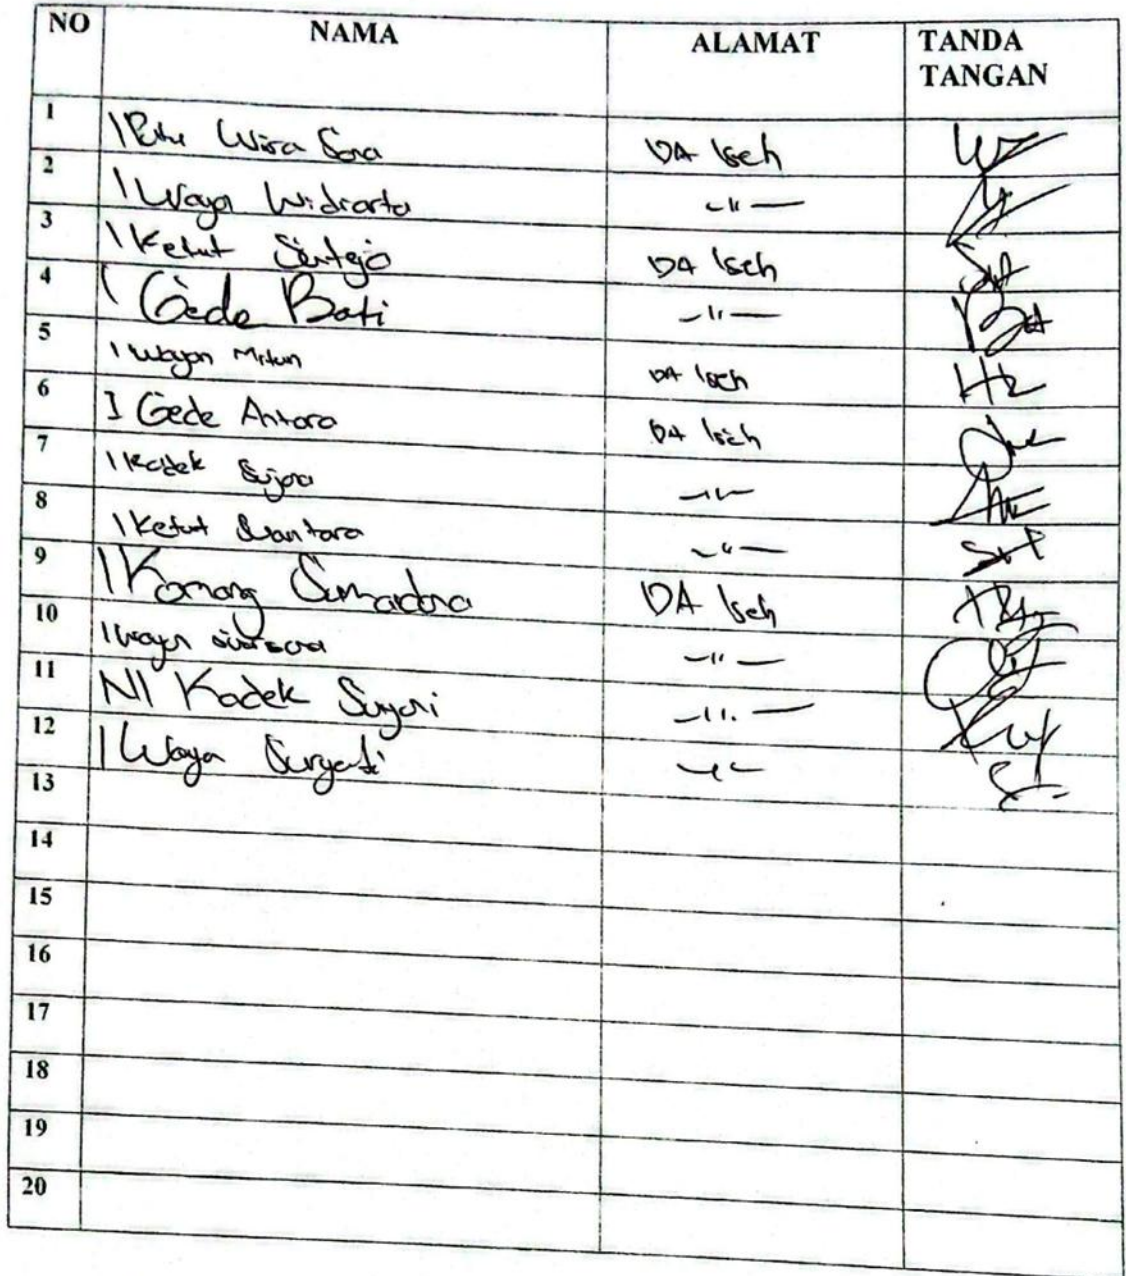 NO NAMA ALAMAT TANDA TANGAN
1 I Putu Wira Sana DA Iseh
2 I Wayan Widiarta -〃-
3 I Ketut DA Iseh
4 I Gede Bati -〃-
5 I Wayan DA Iseh
6 I Gede Antara DA Iseh
7 I Kadek Sujana -〃-
8 I Ketut Suantara -〃-
9 I Komang Sumadana DA Iseh
10 I Wayan -〃-
11 NI Kadek Suryani -〃-
12 I Wayan -〃-
13
14
15
16
17
18
19
20